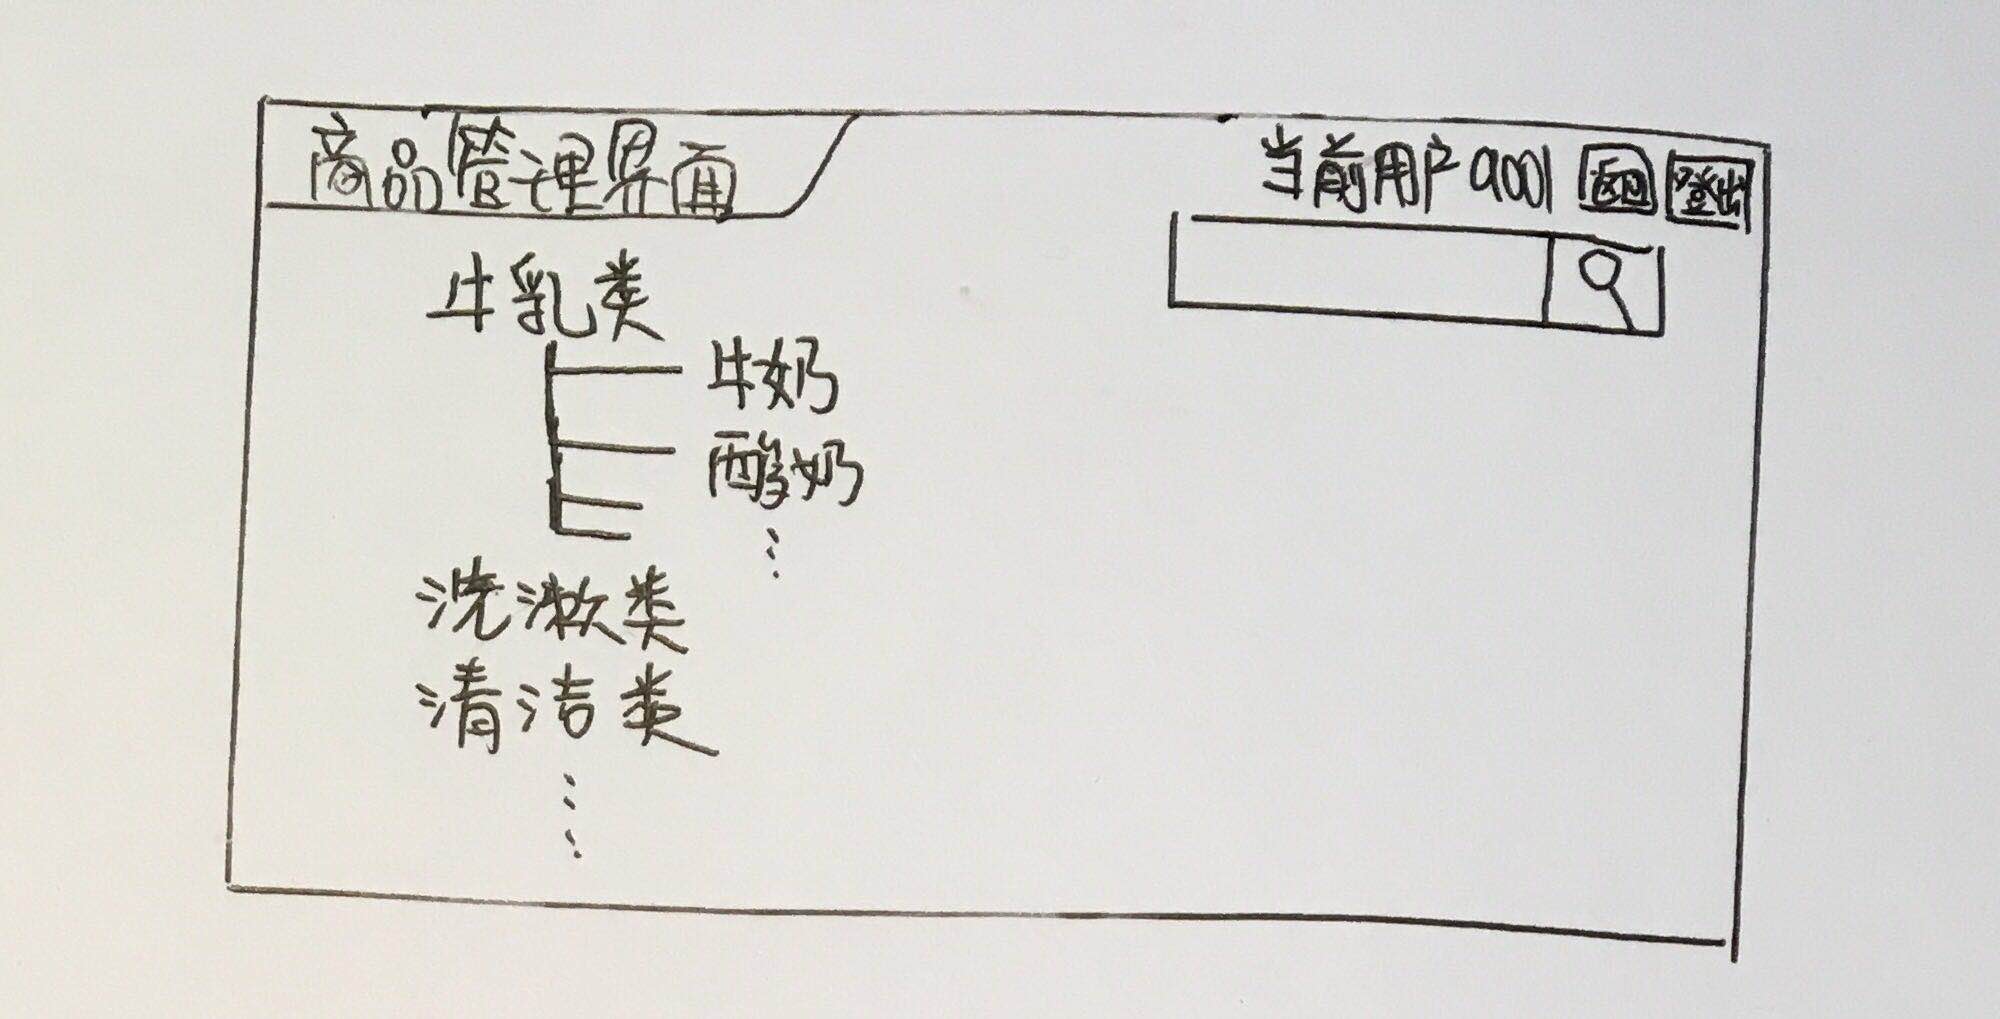 商品管理界面
当前用户 a001 返回 登出
牛乳类
牛奶
酸奶
⋮
洗漱类
清洁类
⋮